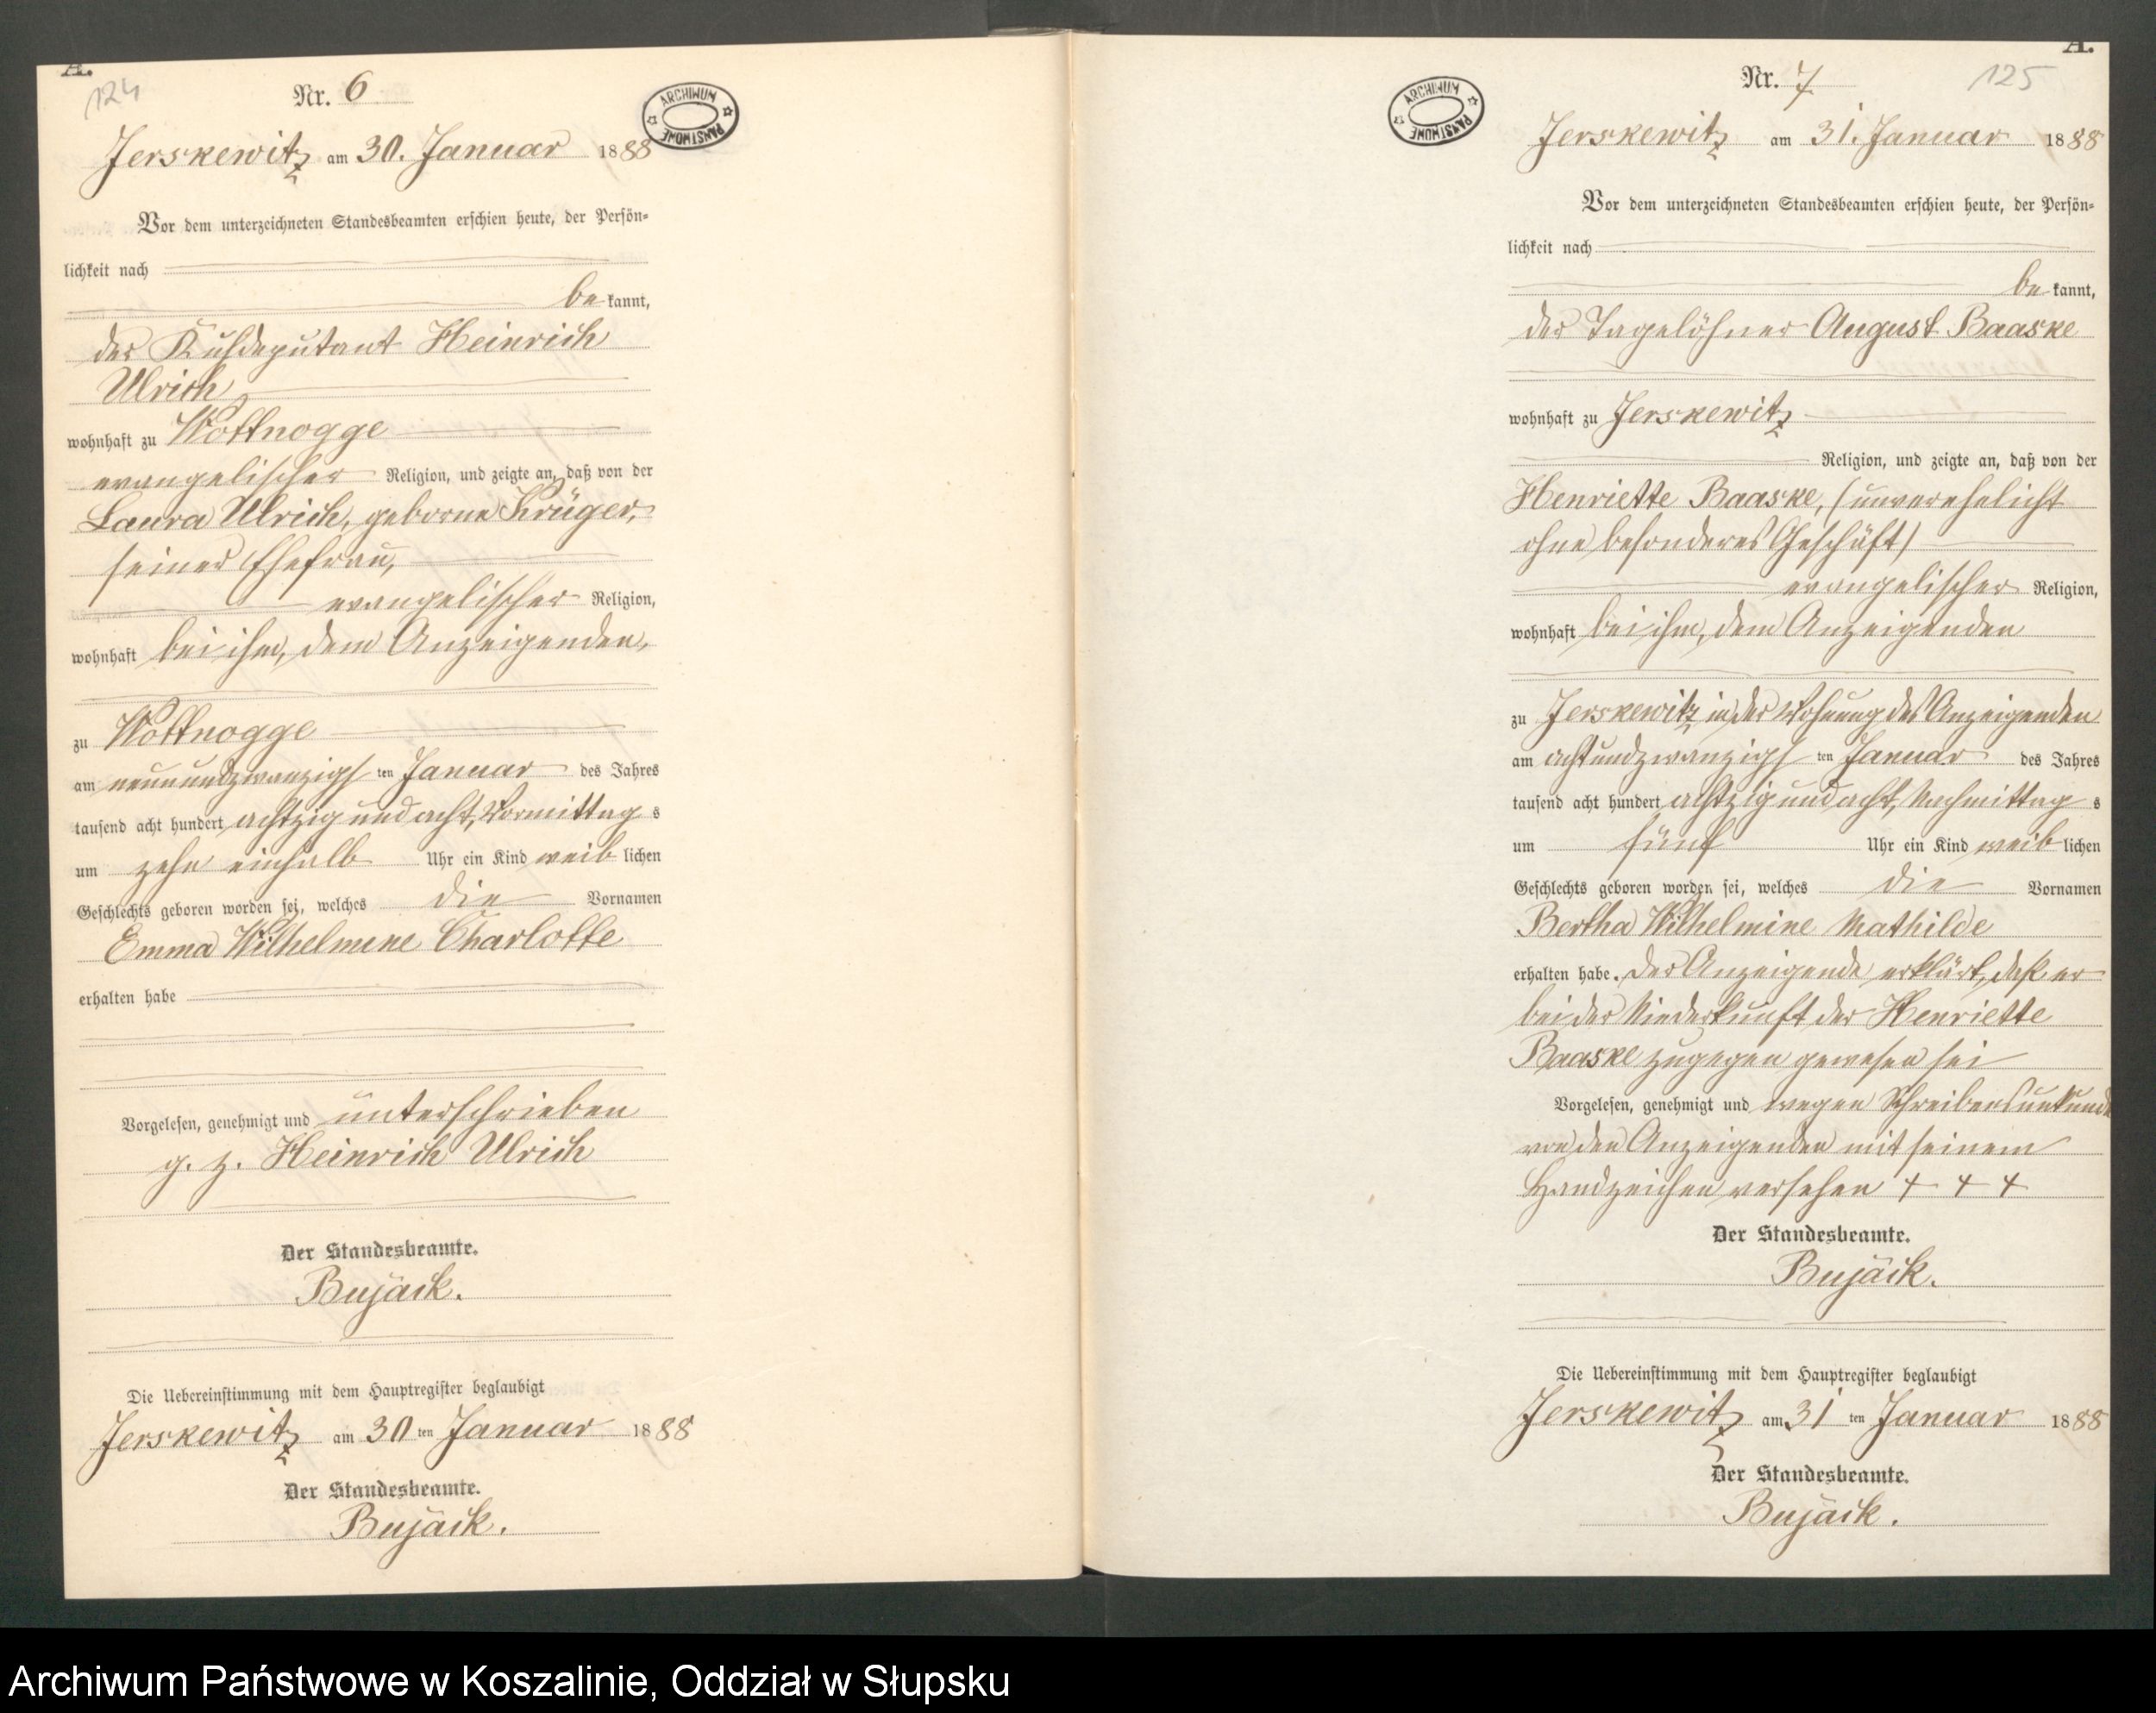 A.
124
Nr. 6
ARCHIWUM PAŃSTWOWE
Jerskewitz am 30. Januar 1888
Vor dem unterzeichneten Standesbeamten erschien heute, der Persön=
lichkeit nach
be kannt,
der Kuhdeputant Heinrich
Ulrich
wohnhaft zu Wottnogge
evangelischer Religion, und zeigte an, daß von der
Laura Ulrich, geborne Krüger,
seiner Ehefrau,
evangelischer Religion,
wohnhaft bei ihm, dem Anzeigenden,
zu Wottnogge
am neunundzwanzigsten Januar des Jahres
tausend acht hundert achtzig und acht, Vormittags
um zehn einhalb Uhr ein Kind weiblichen
Geschlechts geboren worden sei, welches die Vornamen
Emma Wilhelmine Charlotte
erhalten habe
Vorgelesen, genehmigt und unterschrieben
g. z. Heinrich Ulrich
Der Standesbeamte.
Bujack.
Die Uebereinstimmung mit dem Hauptregister beglaubigt
Jerskewitz am 30 ten Januar 1888
Der Standesbeamte.
Bujack.
A.
Nr. 7
125
ARCHIWUM PAŃSTWOWE
Jerskewitz am 31. Januar 1888
Vor dem unterzeichneten Standesbeamten erschien heute, der Persön=
lichkeit nach
be kannt,
der Tagelöhner August Baaske
wohnhaft zu Jerskewitz
Religion, und zeigte an, daß von der
Henriette Baaske, (unverehelicht
ohne besonderes Geschäft)
evangelischer Religion,
wohnhaft bei ihm, dem Anzeigenden
zu Jerskewitz in der Wohnung des Anzeigenden
am achtundzwanzigsten Januar des Jahres
tausend acht hundert achtzig und acht, Nachmittags
um fünf Uhr ein Kind weiblichen
Geschlechts geboren worden sei, welches die Vornamen
Bertha Wilhelmine Mathilde
erhalten habe. Der Anzeigende erklärt, daß er
bei der Niederkunft der Henriette
Baaske zugegen gewesen sei
Vorgelesen, genehmigt und wegen Schreibensunkunde
von den Anzeigenden mit seinem
Handzeichen versehen + + +
Der Standesbeamte.
Bujack.
Die Uebereinstimmung mit dem Hauptregister beglaubigt
Jerskewitz am 31 ten Januar 1888
Der Standesbeamte.
Bujack.
Archiwum Państwowe w Koszalinie, Oddział w Słupsku